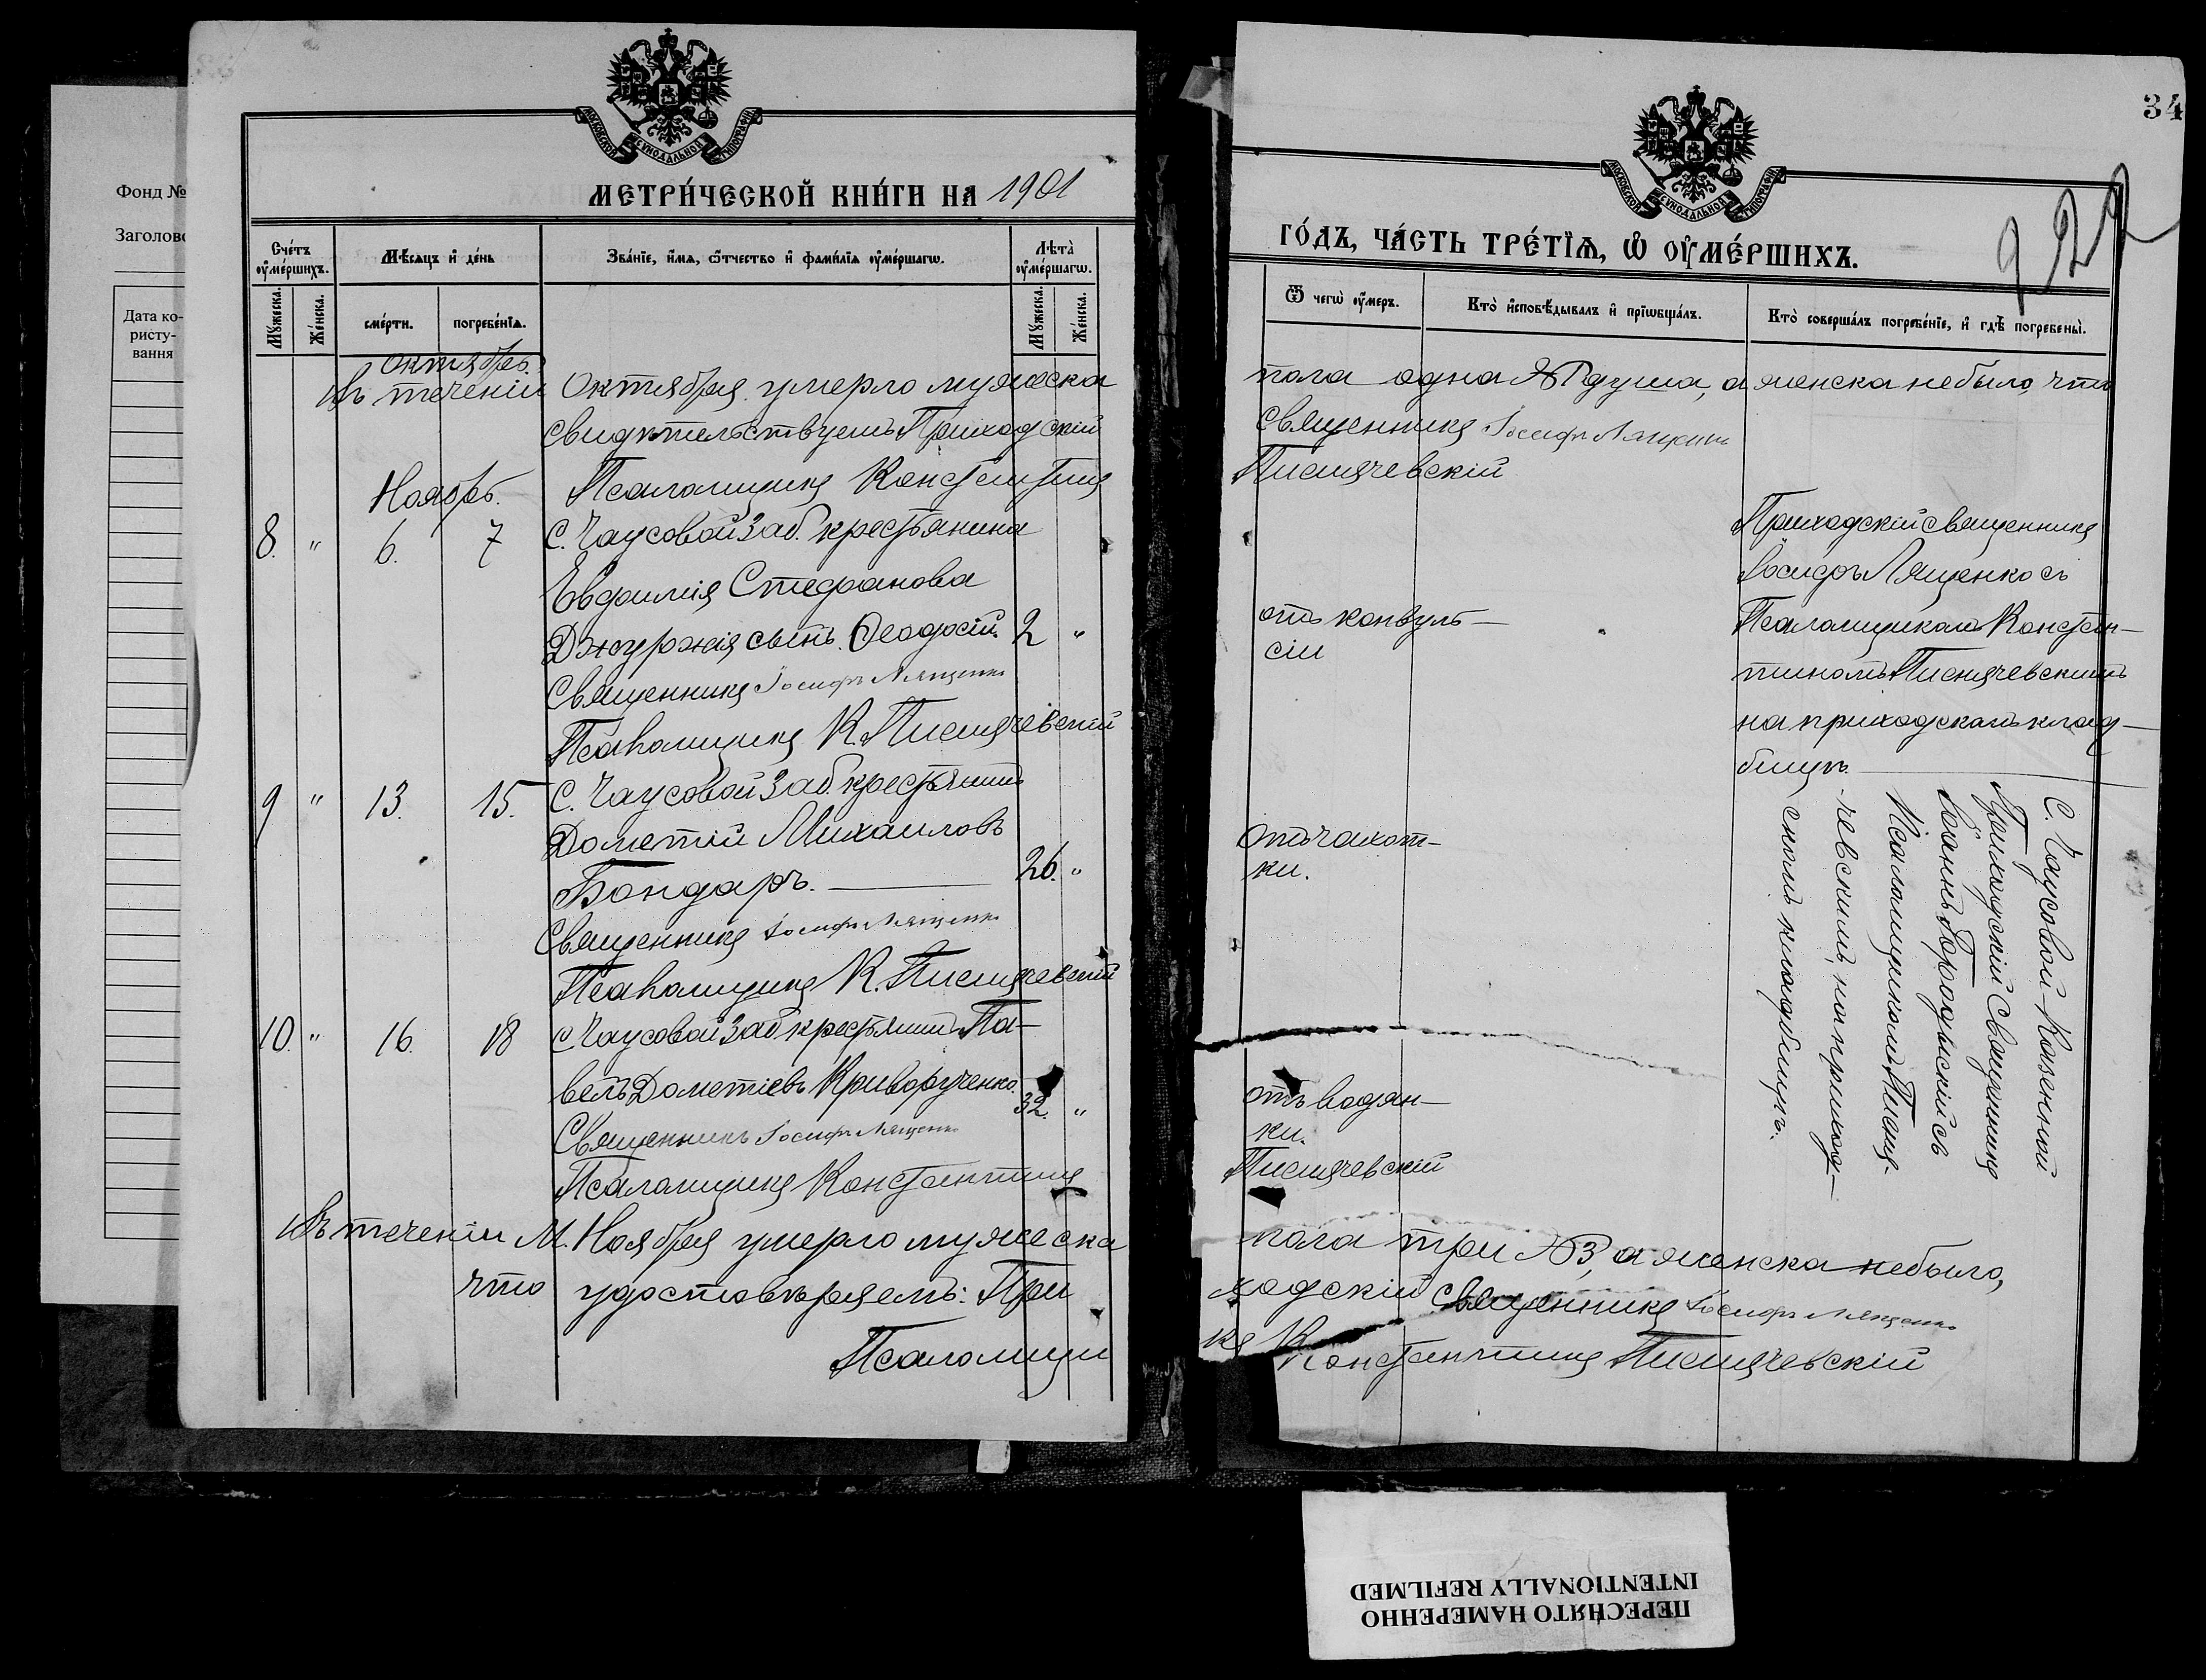 Фонд №
Заголово
Дата ко-
ристу-
вання
МОСКОВСКОЙ СѴНОДАЛЬНОЙ ТИПОГРАФІИ
МЕТРИ́ЧЕСКОЙ КНИ́ГИ НА 1901
Сче́тъ ᲂу҆ме́ршихъ.
Мѣ́сяцъ и҆ де́нь
Зва́нїе, и҆́мѧ, ѻ҆́тчество и҆ фами́лїѧ ᲂу҆ме́ршагѡ.
Лѣ̀та ᲂу҆ме́ршагѡ.
Мꙋ́жеска.
Же́нска.
сме́рти.
погребе́нїѧ.
Мꙋ́жеска.
Же́нска.
Октябрь.
Въ теченіи Октября умерло мужеска
свидѣтельствуемъ Приходскій
Ноябрь.
Псаломщикъ Константинъ
8. " 6. 7 С. Чаусовой Заб. крестьянина
Евфимія Стефанова
Джуржія сынъ Ѳеодосій. 2 "
Священникъ Іосифъ Лященко
Псаломщикъ К. Писнячевскій
9 " 13. 15. С. Чаусовой Заб. крестьянинъ
Дометій Михаиловъ
Бондарь. 26. "
Священникъ Іосифъ Лященко
Псаломщикъ К. Писнячевскій
10. " 16. 18 С. Чаусовой Заб крестьянинъ Па-
велъ Дометіевъ Криворученко. 32. "
Священникъ Іосифъ Лященко
Псаломщикъ Константинъ
Въ теченіи М. Ноября умерло мужеска
что удостовѣряемъ: При
Псаломщи
34
МОСКОВСКОЙ СѴНОДАЛЬНОЙ ТИПОГРАФІИ
ГО́ДЪ, ЧА́СТЬ ТРЕ́ТЇѦ, Ѡ҆ ОУ҆МЕ́РШИХЪ.
922
Ѿ чегѡ̀ ᲂу҆́меръ.
Кто̀ и҆сповѣ́дывалъ и҆ прїѡбща́лъ.
Кто̀ соверша́лъ погребе́нїе, и҆ гдѣ̀ погребены̀.
пола одна № 1 душа, а женска небыло, что
Священникъ Іосифъ Лященко
Писнячевскій
Приходскій священникъ
Іосифъ Лященко съ
отъ конвуль-
сіи
Псаломщикомъ Констан-
тиномъ Писнячевскимъ
на приходскомъ клад-
бищѣ
Отъ чахот-
ки.
С. Чаусовой-Казенной
Приходскій Священникъ
Іоаннъ Бородыскій съ
Псаломщикомъ Писня-
чевскимъ, на приход-
скомъ кладбищѣ.
отъ водян-
ки.
Писнячевскій
пола три № 3, а женска небыло,
ходскій Священникъ Іосифъ Лященко
къ Константинъ Писнячевскій
ПЕРЕСНЯТО НАМЕРЕННО
INTENTIONALLY REFILMED